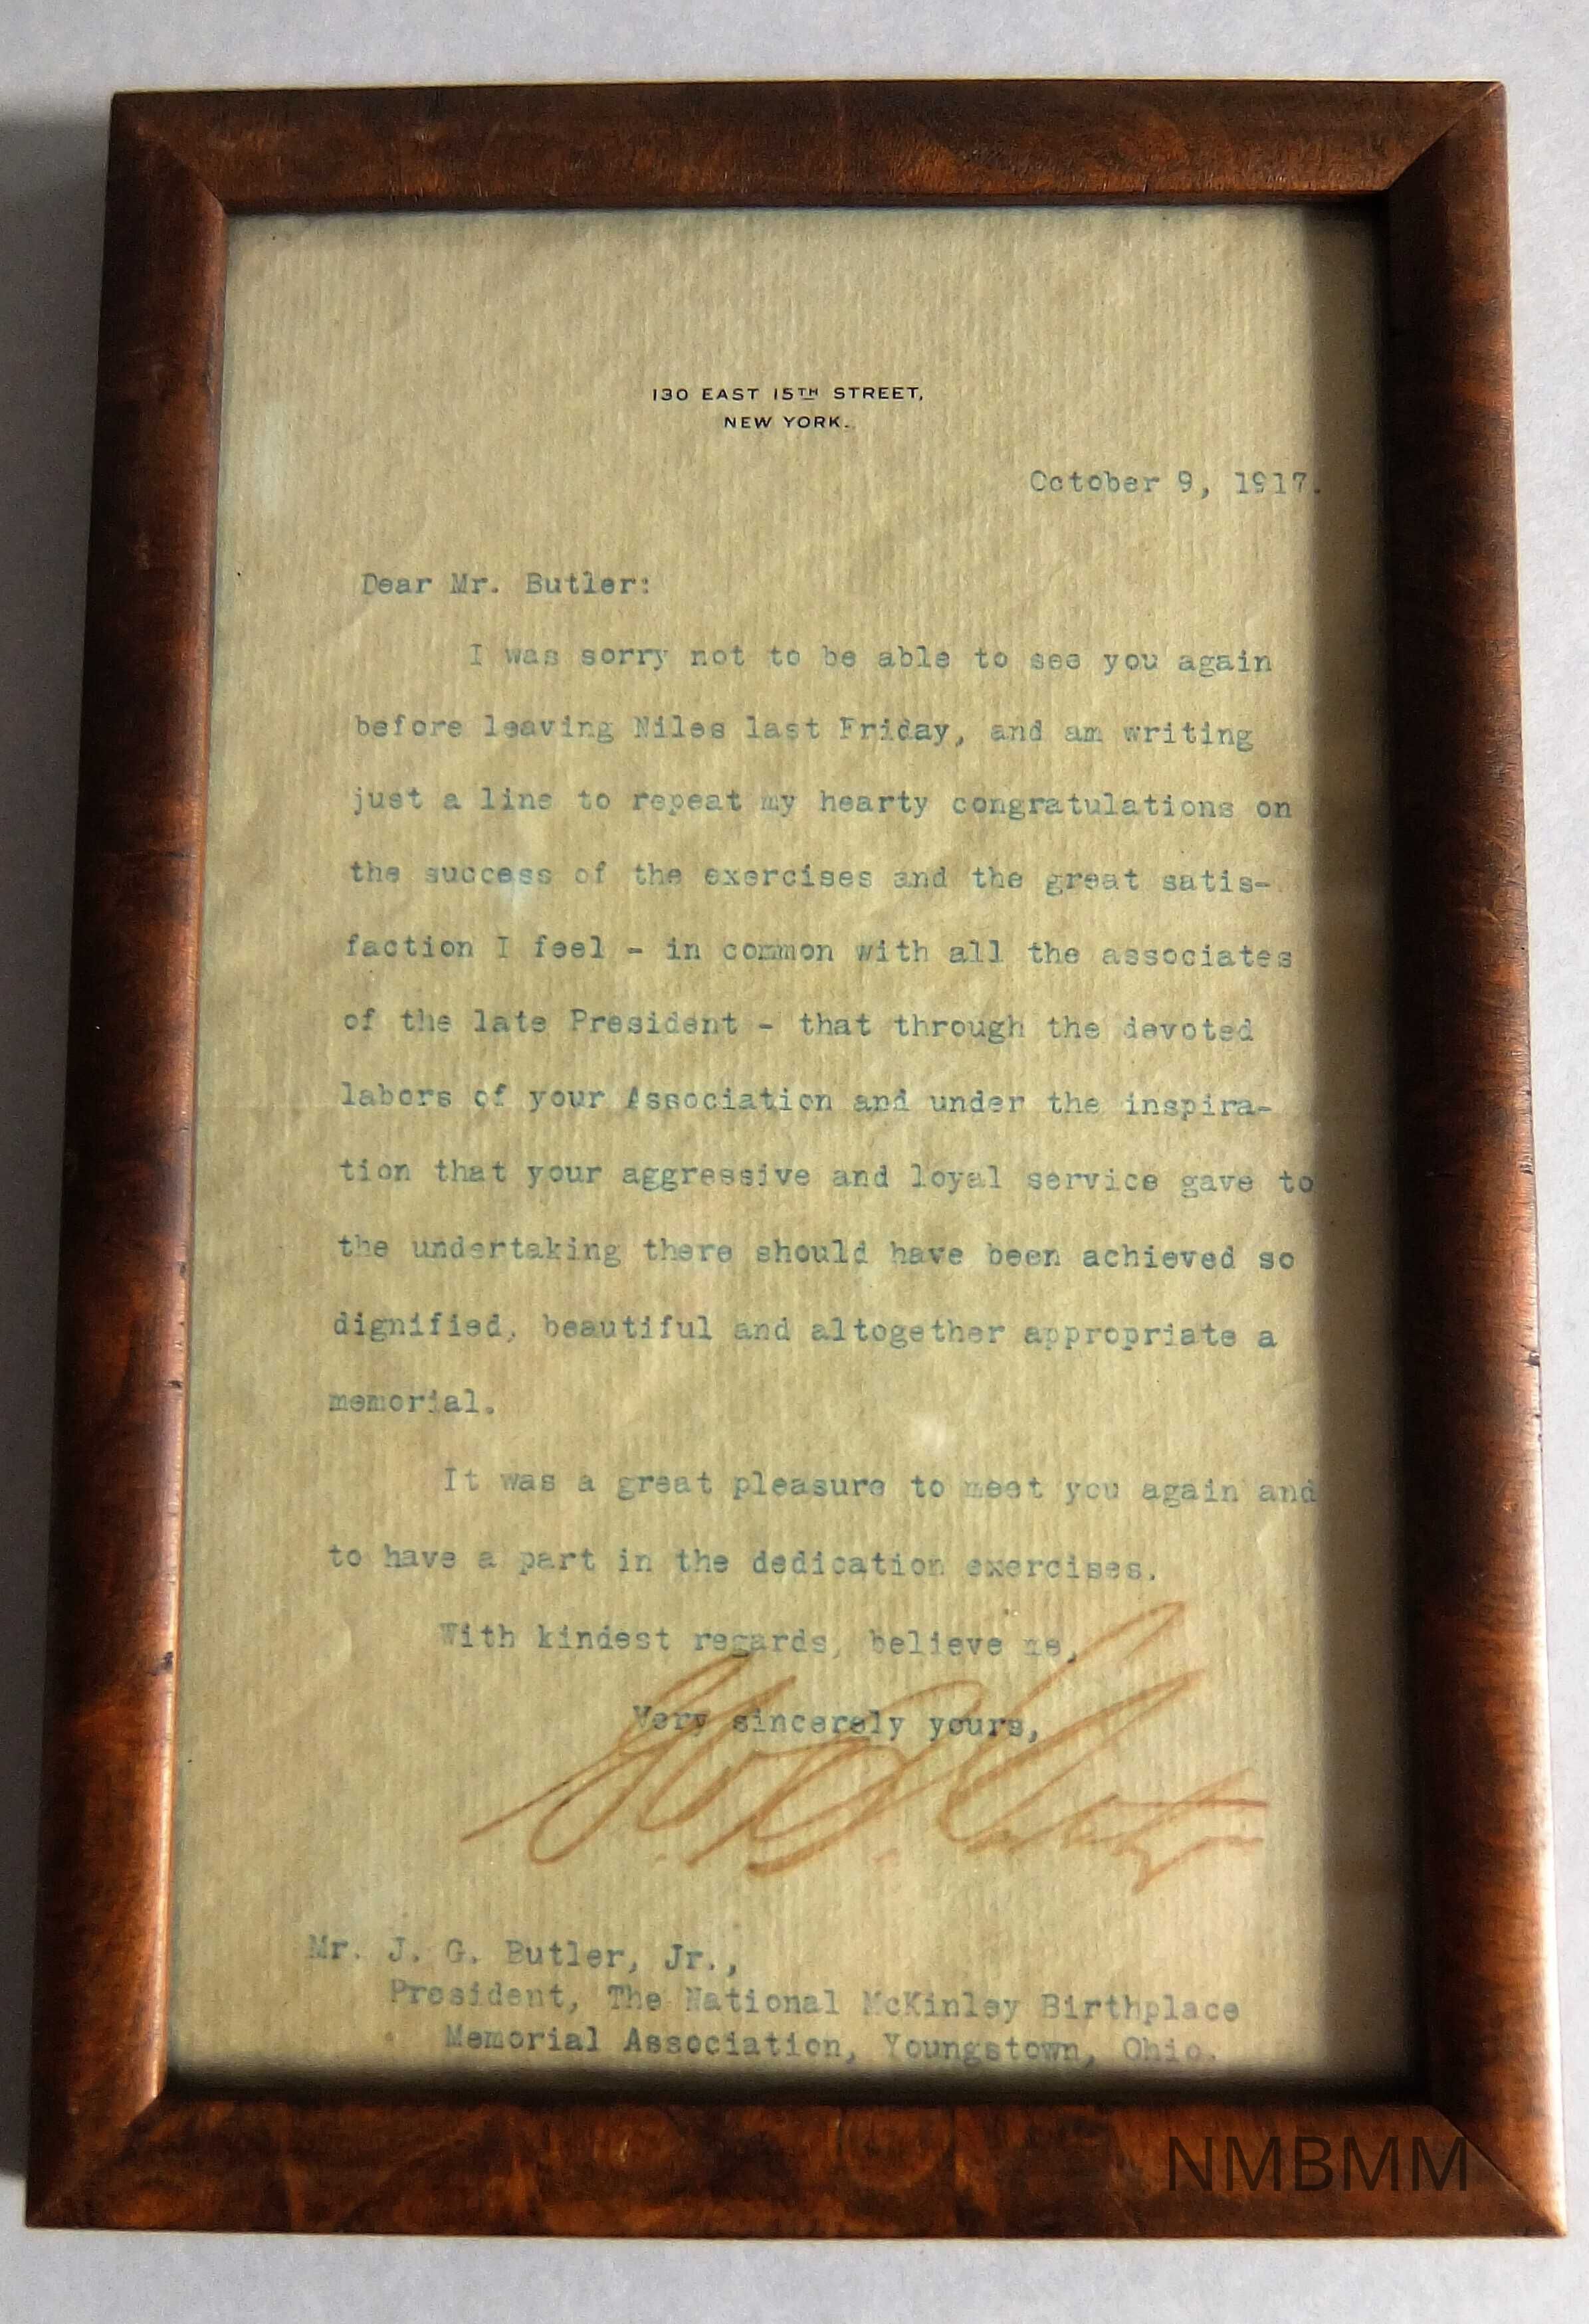 130 EAST 15TH STREET,
NEW YORK.
October 9, 1917.
Dear Mr. Butler:
I was sorry not to be able to see you again
before leaving Niles last Friday, and am writing
just a line to repeat my hearty congratulations on
the success of the exercises and the great satis-
faction I feel - in common with all the associates
of the late President - that through the devoted
labors of your Association and under the inspira-
tion that your aggressive and loyal service gave to
the undertaking there should have been achieved so
dignified, beautiful and altogether appropriate a
memorial.
It was a great pleasure to meet you again and
to have a part in the dedication exercises.
With kindest regards, believe me,
Very sincerely yours,
Mr. J. G. Butler, Jr.,
President, The National McKinley Birthplace
Memorial Association, Youngstown, Ohio.
NMBMM